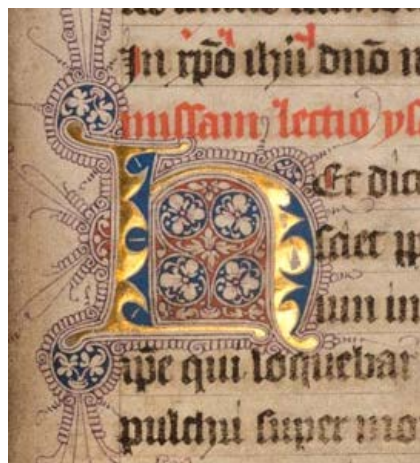 In xp̄o ih̄u dn̄o n
missam, lectio ys
hEc dic
sciet p
um in
ip̄e qui loquebar
pulchri super mo